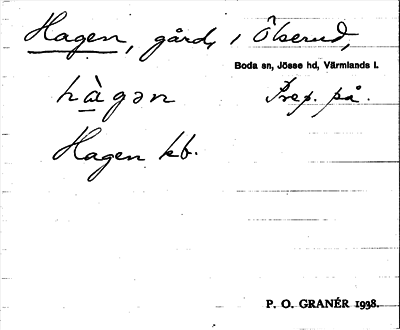 Hagen, gård, i Ölserud,
Boda sn, Jösse hd, Värmlands l.
hàgǝn Prep. på.
Hagen kb.
P. O. GRANÉR 1938.